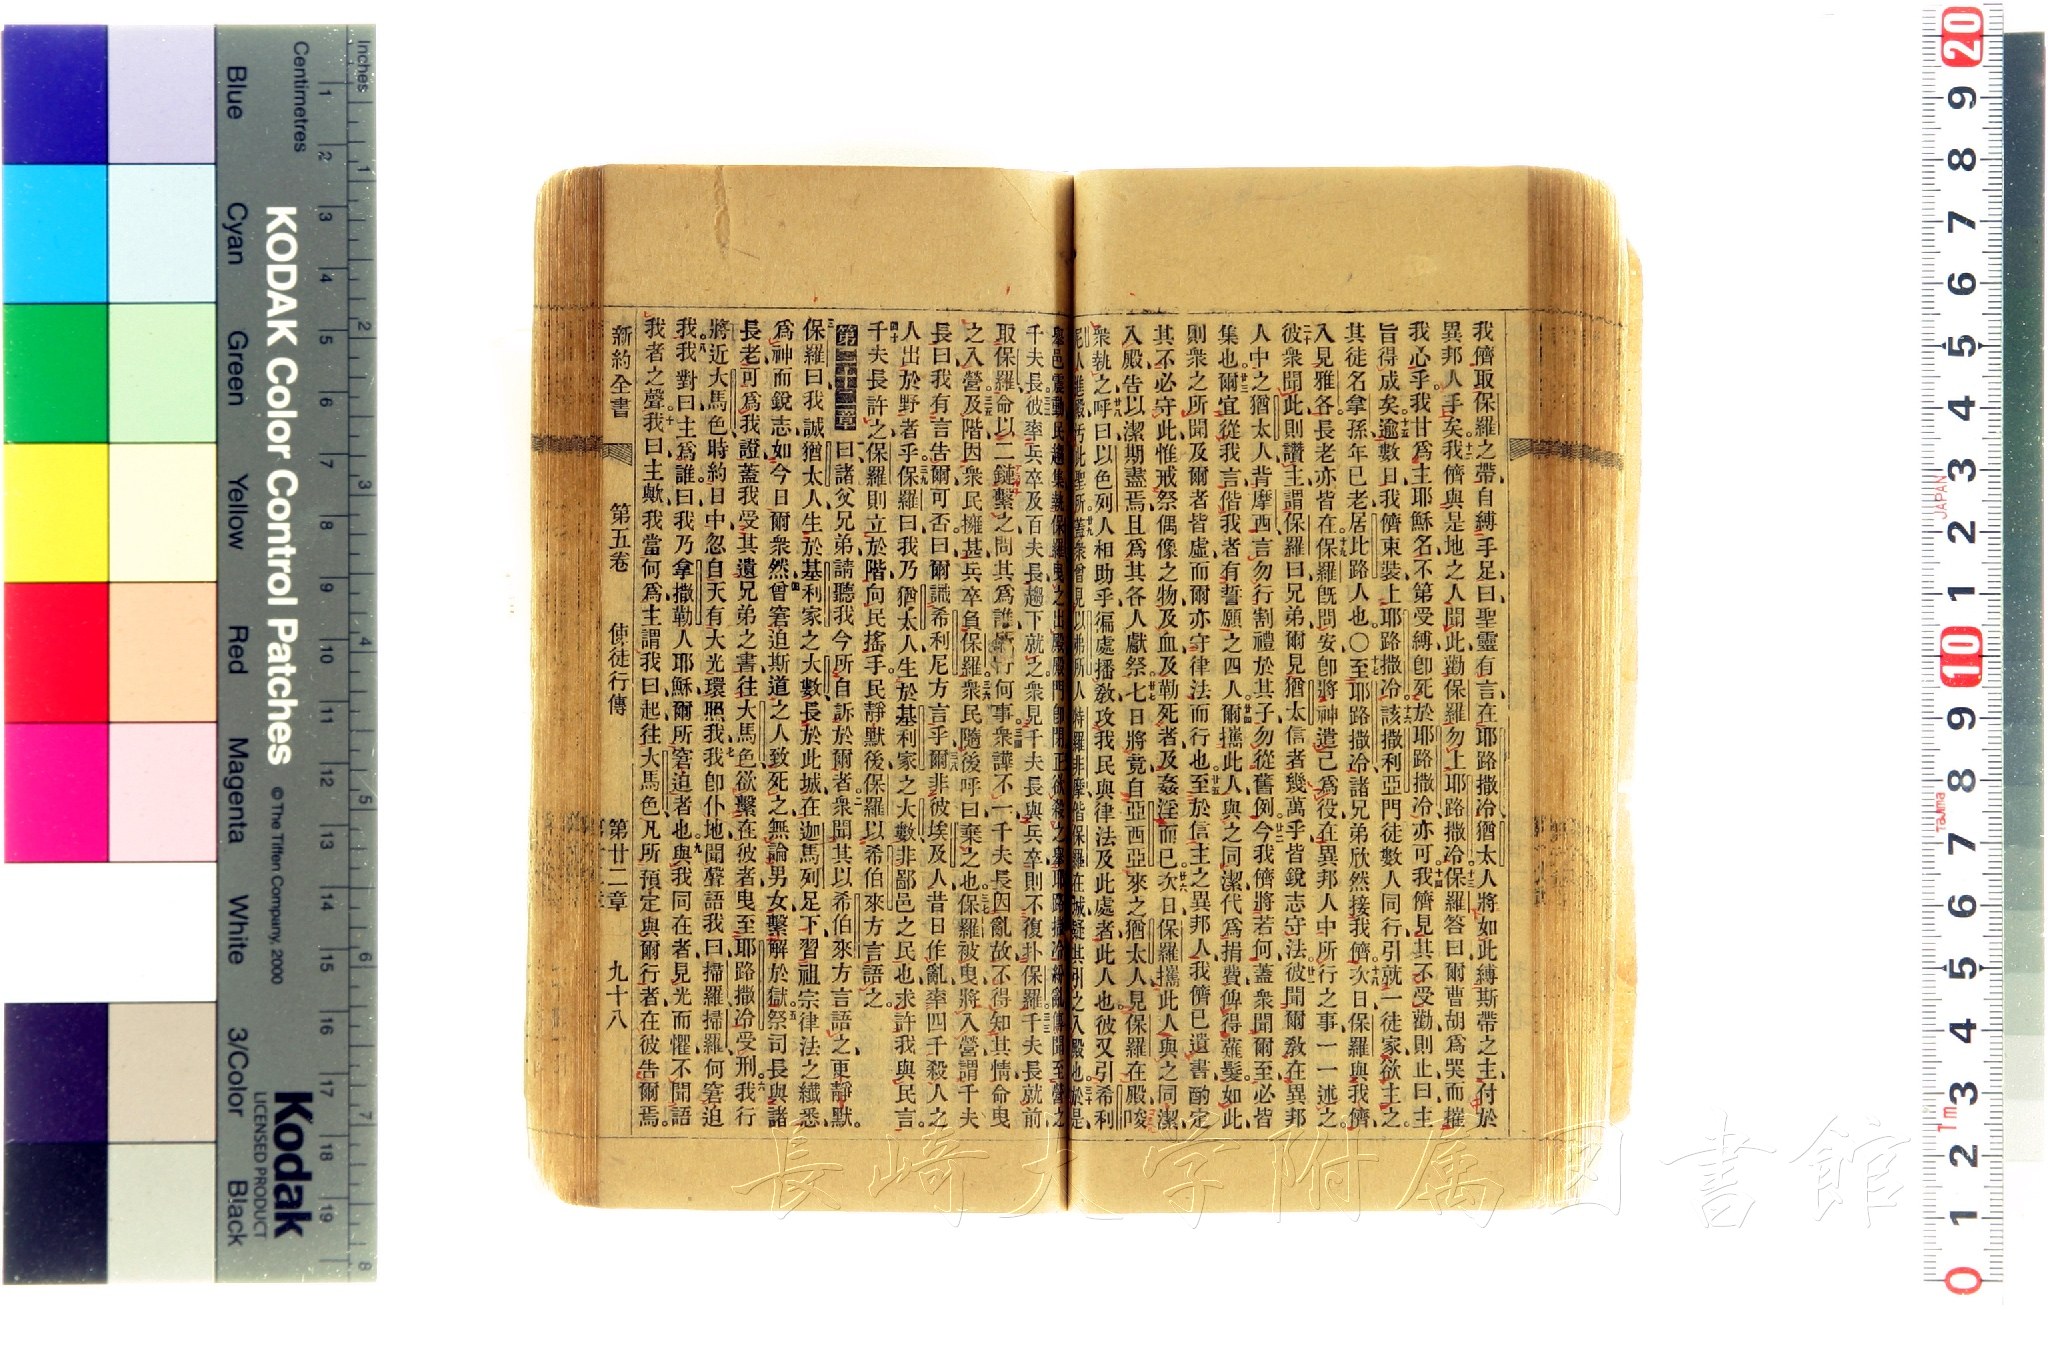 我儕取保羅之帶自縛手足曰聖靈有言在耶路撒冷猶太人將如此縛斯帶之主付於
異邦人手矣我儕與是地之人聞此勸保羅勿上耶路撒冷保羅答曰爾曹胡爲哭而摧
我心乎我甘爲主耶穌名不第受縛卽死於耶路撒冷亦可我儕見其不受勸則止曰主
旨得成矣逾數日我儕束裝上耶路撒冷該撒利亞門徒數人同行引就一徒家欲主之
其徒名拿孫年已老居比路人也〇至耶路撒冷諸兄弟欣然接我儕次日保羅與我儕
入見雅各長老亦皆在保羅旣問安卽將神遣己爲役在異邦人中所行之事一一述之
彼衆聞此則讚主謂保羅曰兄弟爾見猶太信者幾萬乎皆銳志守法彼聞爾敎在異邦
人中之猶太人背摩西言勿行割禮於其子勿從舊例今我儕將若何蓋衆聞爾至必皆
集也爾宜從我言偕我者有誓願之四人爾攜此人與之同潔代爲捐費俾得薙髮如此
則衆之所聞及爾者皆虛而爾亦守律法而行也至於信主之異邦人我儕已遺書酌定
其不必守此惟戒祭偶像之物及血及勒死者及姦淫而已次日保羅攜此人與之同潔
入殿告以潔期盡焉且爲其各人獻祭七日將竟自亞西亞來之猶太人見保羅在殿唆
衆執之呼曰以色列人相助乎徧處播敎攻我民與律法及此處者此人也彼又引希利
尼人進殿污此聖所蓋衆曾見以弗所人特羅非摩偕保羅在城疑其引之入殿也於是
舉邑震動民趨集執保羅曳之出殿殿門卽閉正欲殺之舉耶路撒冷紛亂傳聞至營之
千夫長彼率兵卒及百夫長趨下就之衆見千夫長與兵卒則不復扑保羅千夫長就前
取保羅命以二鏈繫之問其爲誰所行何事衆譁不一千夫長因亂故不得知其情命曳
之入營及階因衆民擁甚兵卒負保羅衆民隨後呼曰棄之也保羅被曳將入營謂千夫
長曰我有言告爾可否曰爾識希利尼方言乎爾非彼埃及人昔日作亂率四千殺人之
人出於野者乎保羅曰我乃猶太人生於基利家之大數非鄙邑之民也求許我與民言
千夫長許之保羅則立於階向民搖手民靜默後保羅以希伯來方言語之
第二十二章 曰諸父兄弟請聽我今所自訴於爾者衆聞其以希伯來方言語之更靜默
保羅曰我誠猶太人生於基利家之大數長於此城在迦馬列足下習祖宗律法之纖悉
爲神而銳志如今日爾衆然曾窘迫斯道之人致死之無論男女繫解於獄祭司長與諸
長老可爲我證蓋我受其遺兄弟之書往大馬色欲繫在彼者曳至耶路撒冷受刑我行
將近大馬色時約日中忽自天有大光環照我我卽仆地聞聲語我曰掃羅掃羅何窘迫
我我對曰主爲誰曰我乃拿撒勒人耶穌爾所窘迫者也與我同在者見光而懼不聞語
我者之聲我曰主歟我當何爲主謂我曰起往大馬色凡所預定與爾行者在彼告爾焉
新約全書 第五卷 使徒行傳 第廿二章 九十八
Inches
Centimetres
Blue
Cyan
Green
Yellow
Red
Magenta
White
3/Color
Black
KODAK Color Control Patches
© The Tiffen Company, 2000
Kodak
LICENSED PRODUCT
JAPAN
Tajima
長崎大学附属図書館